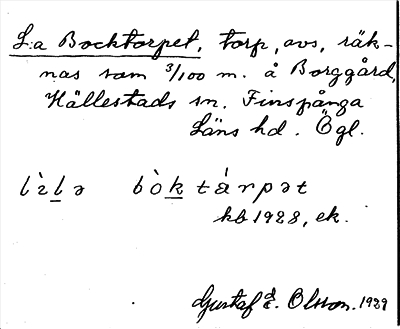 L:a Bocktorpet, torp, avs, räk-
nas som 3/100 m. å Borggård,
Hällestads sn. Finspånga
Läns hd. Ögl.
lìlə bòktárpət
hb 1928, ek.
Gustaf d. E. Olsson. 1929